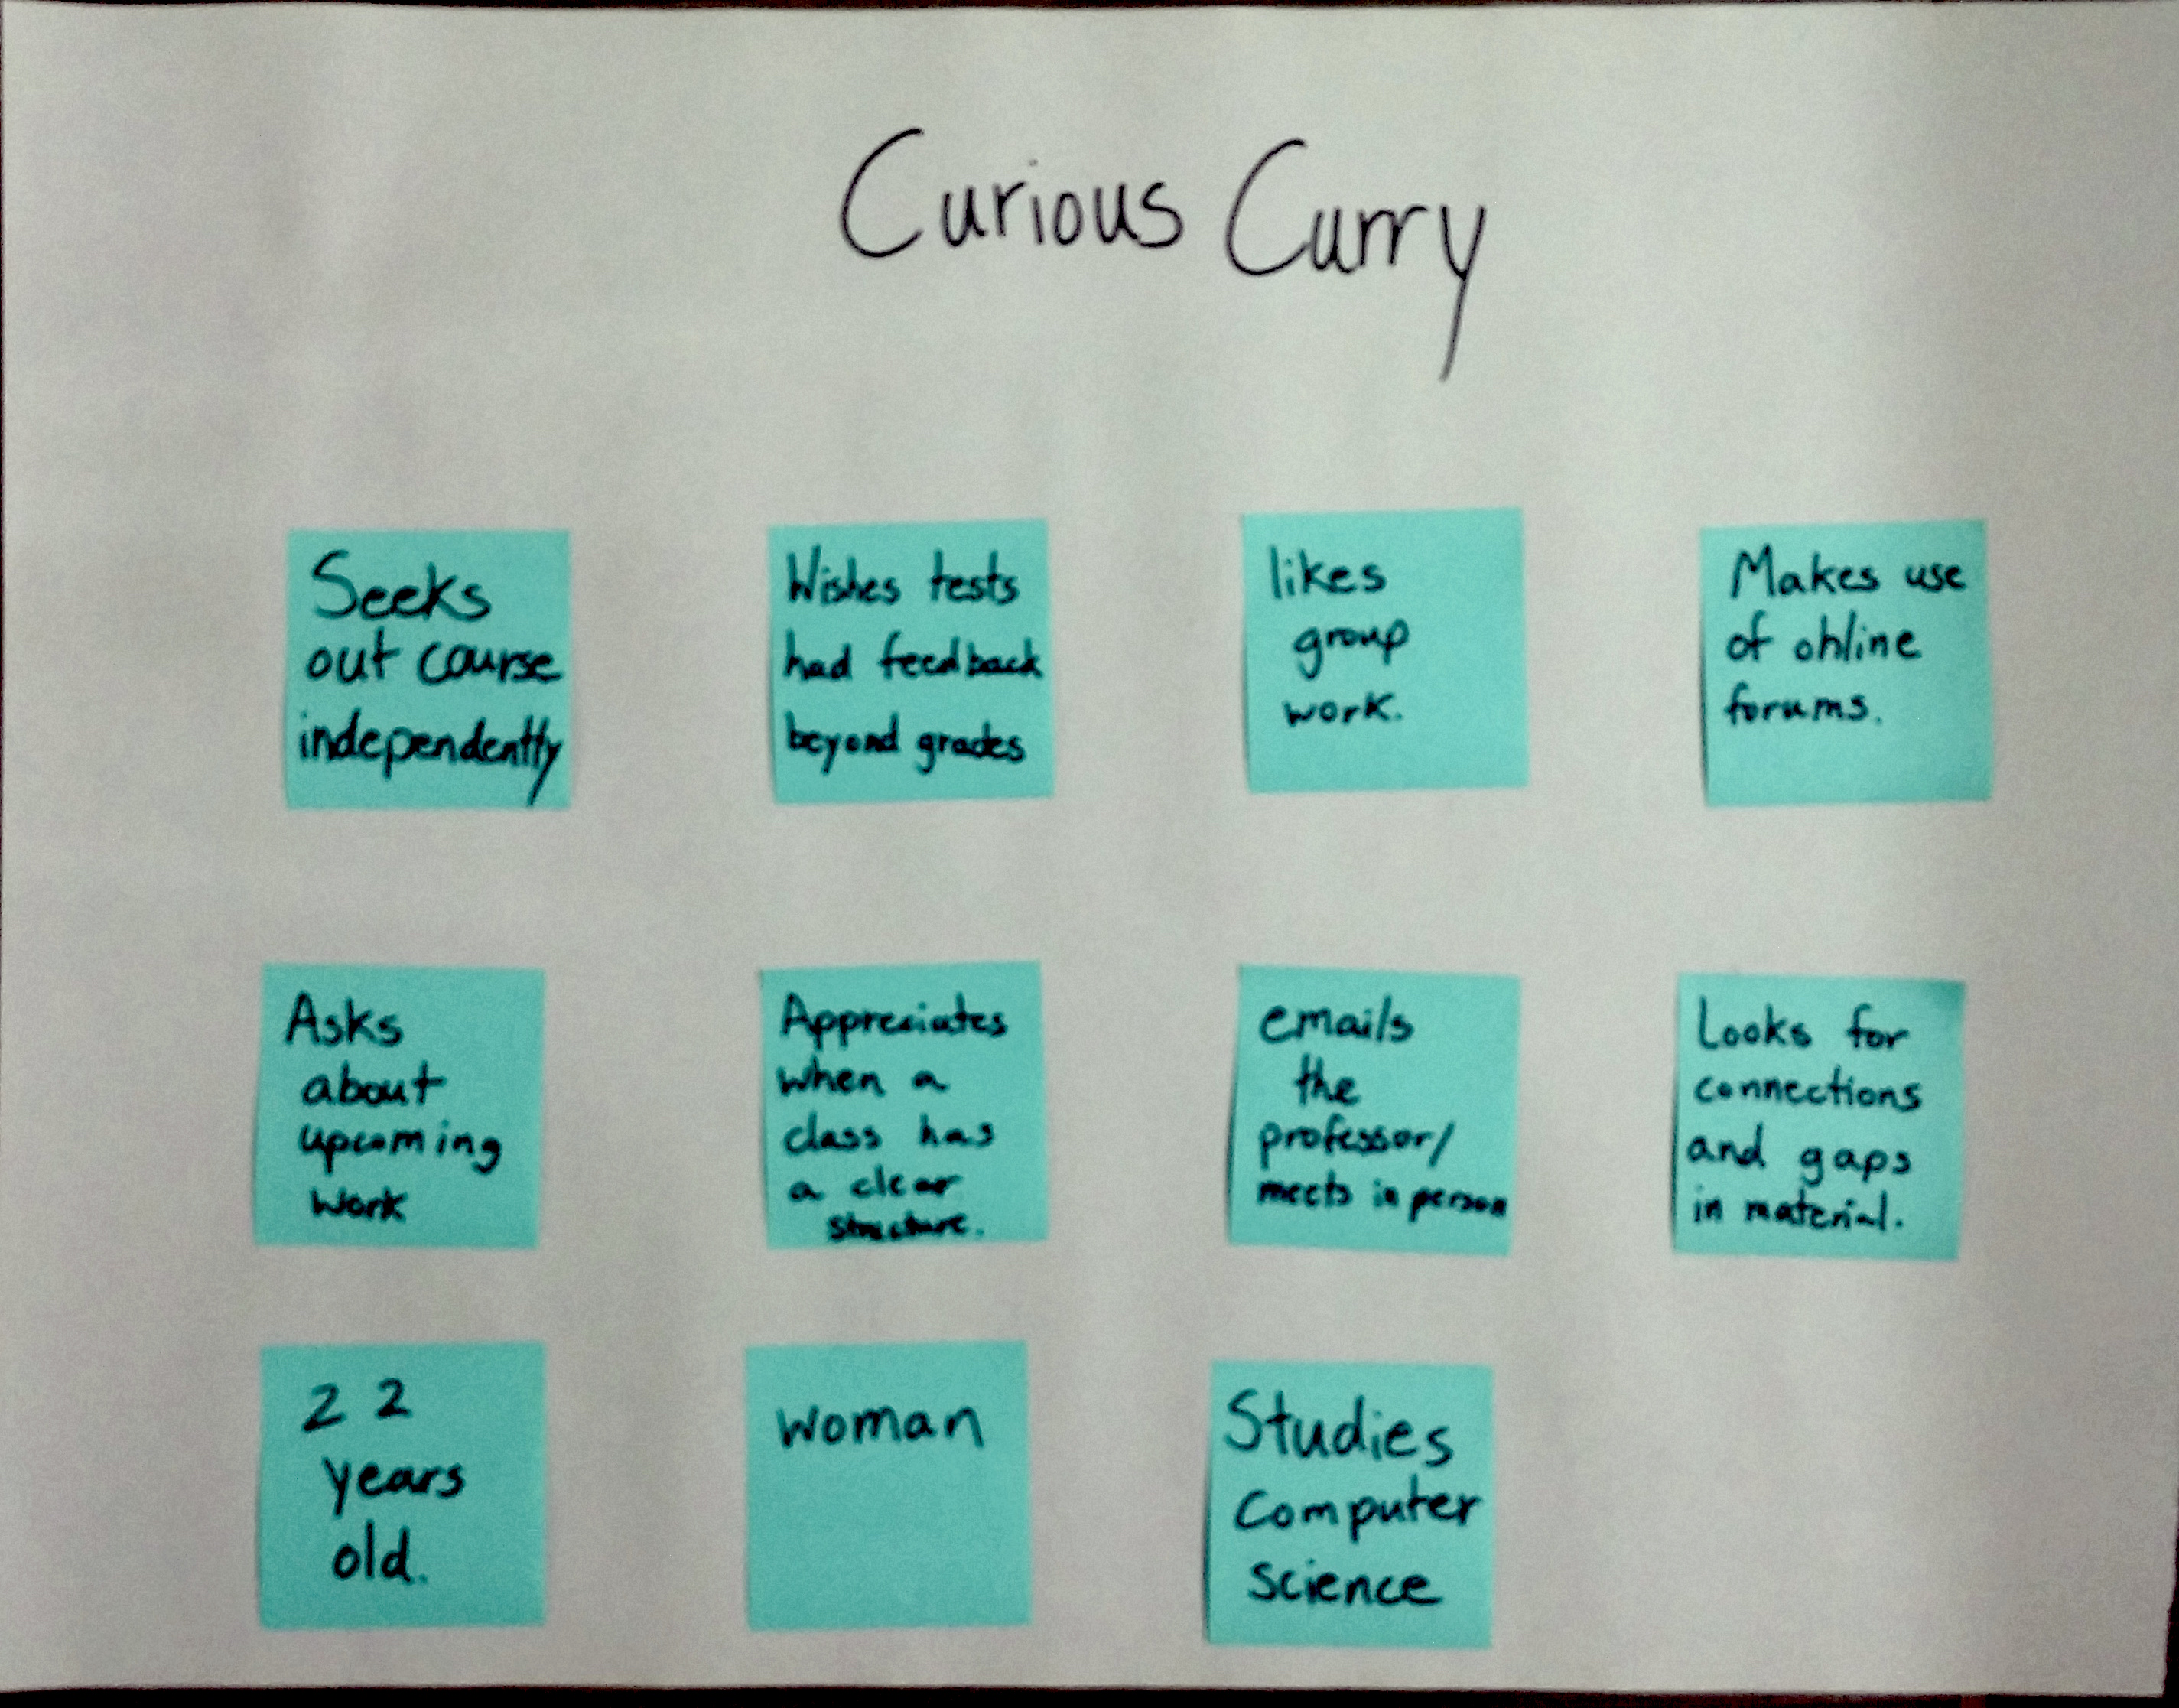 Curious Curry
Seeks
out course
independently
Wishes tests
had feedback
beyond grades
likes
group
work.
Makes use
of online
forums.
Asks
about
upcoming
work
Appreciates
when a
class has
a clear
structure.
emails
the
professor/
meets in person
Looks for
connections
and gaps
in material.
22
years
old.
woman
Studies
Computer
science